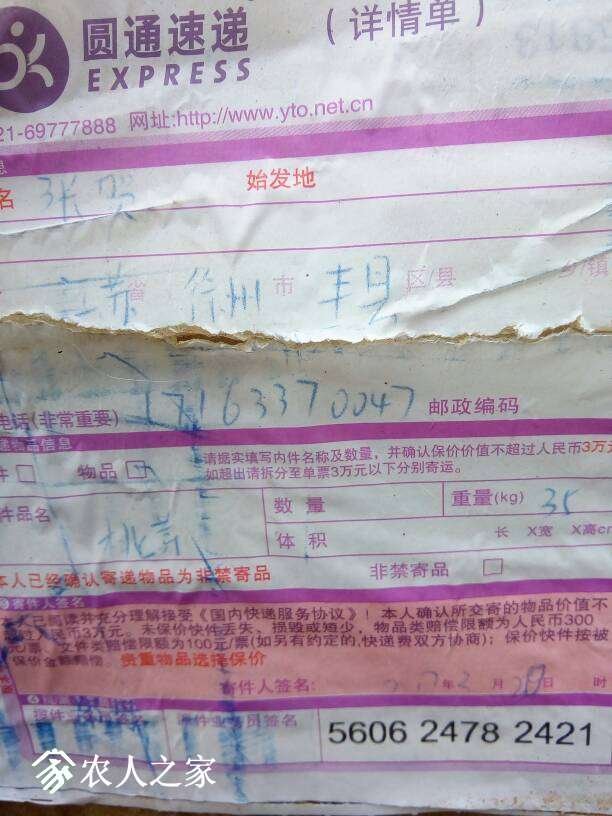 圆通速递
（详情单）
EXPRESS
21-69777888 网址:http://www.yto.net.cn
名 张贺 始发地
江苏 省 徐州 市 丰县 区/县 乡/镇
电话(非常重要) 17163370047 邮政编码
递物品信息
请据实填写内件名称及数量，并确认保价价值不超过人民币3万元
件 物品
如超出请拆分至单票3万元以下分别寄运。
件品名 数量 重量(kg) 35
桃 体积 长 X宽 X高cm
本人已经确认寄递物品为非禁寄品 非禁寄品
寄件人签名
人已阅读并充分理解接受《国内快递服务协议》！本人确认所交寄的物品价值不
超过人民币3万元。未保价快件丢失、损毁或短少，物品类赔偿限额为人民币300
元/票、文件类赔偿限额为100元/票(如另有约定的,快递费双方协商)；保价快件按被
保价金额赔偿。贵重物品选择保价
寄件人签名: 年2 月 20日 时
签名
5606 2478 2421
农人之家